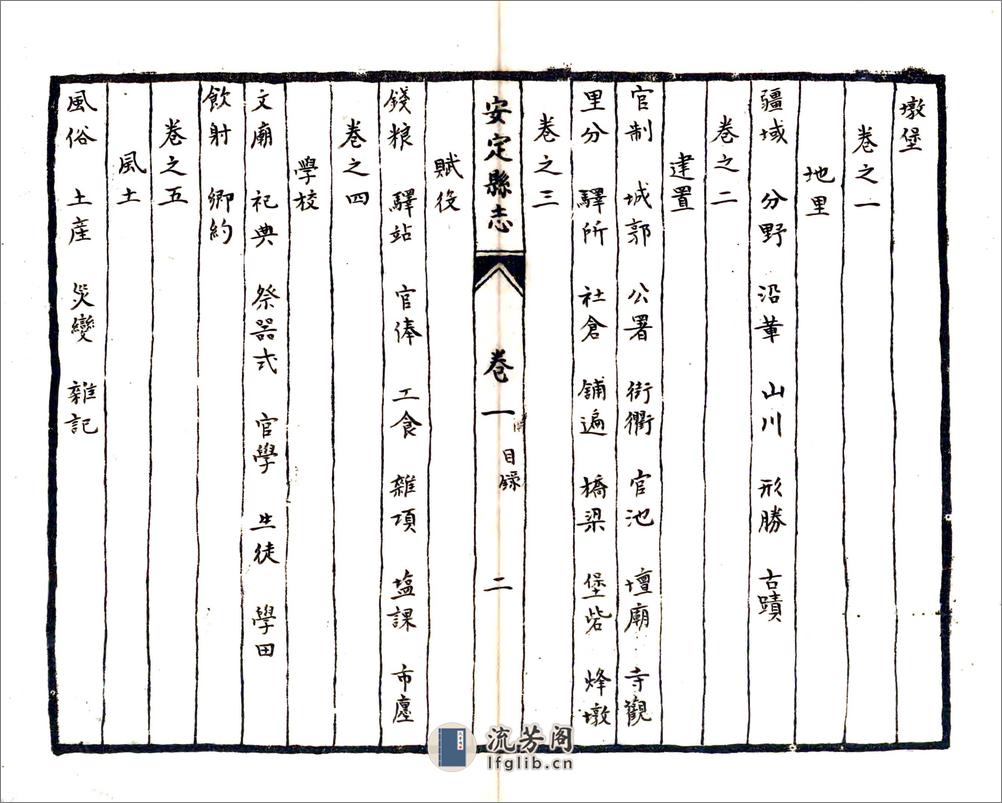 墩堡
卷之一
地里
疆域 分野 沿革 山川 形勝 古蹟
卷之二
建置
官制 城郭 公署 街衢 官池 壇廟 寺觀
里分 驛所 社倉 鋪遞 橋梁 堡砦 烽墩
卷之三
安定縣志 卷一 目録 二
賦役
錢粮 驛站 官俸 工食 雜項 塩課 市廛
卷之四
學校
文廟 祀典 祭器式 官學 生徒 學田
飲射 鄉約
卷之五
風土
風俗 土産 災變 雜記
流芳阁
lfglib.cn